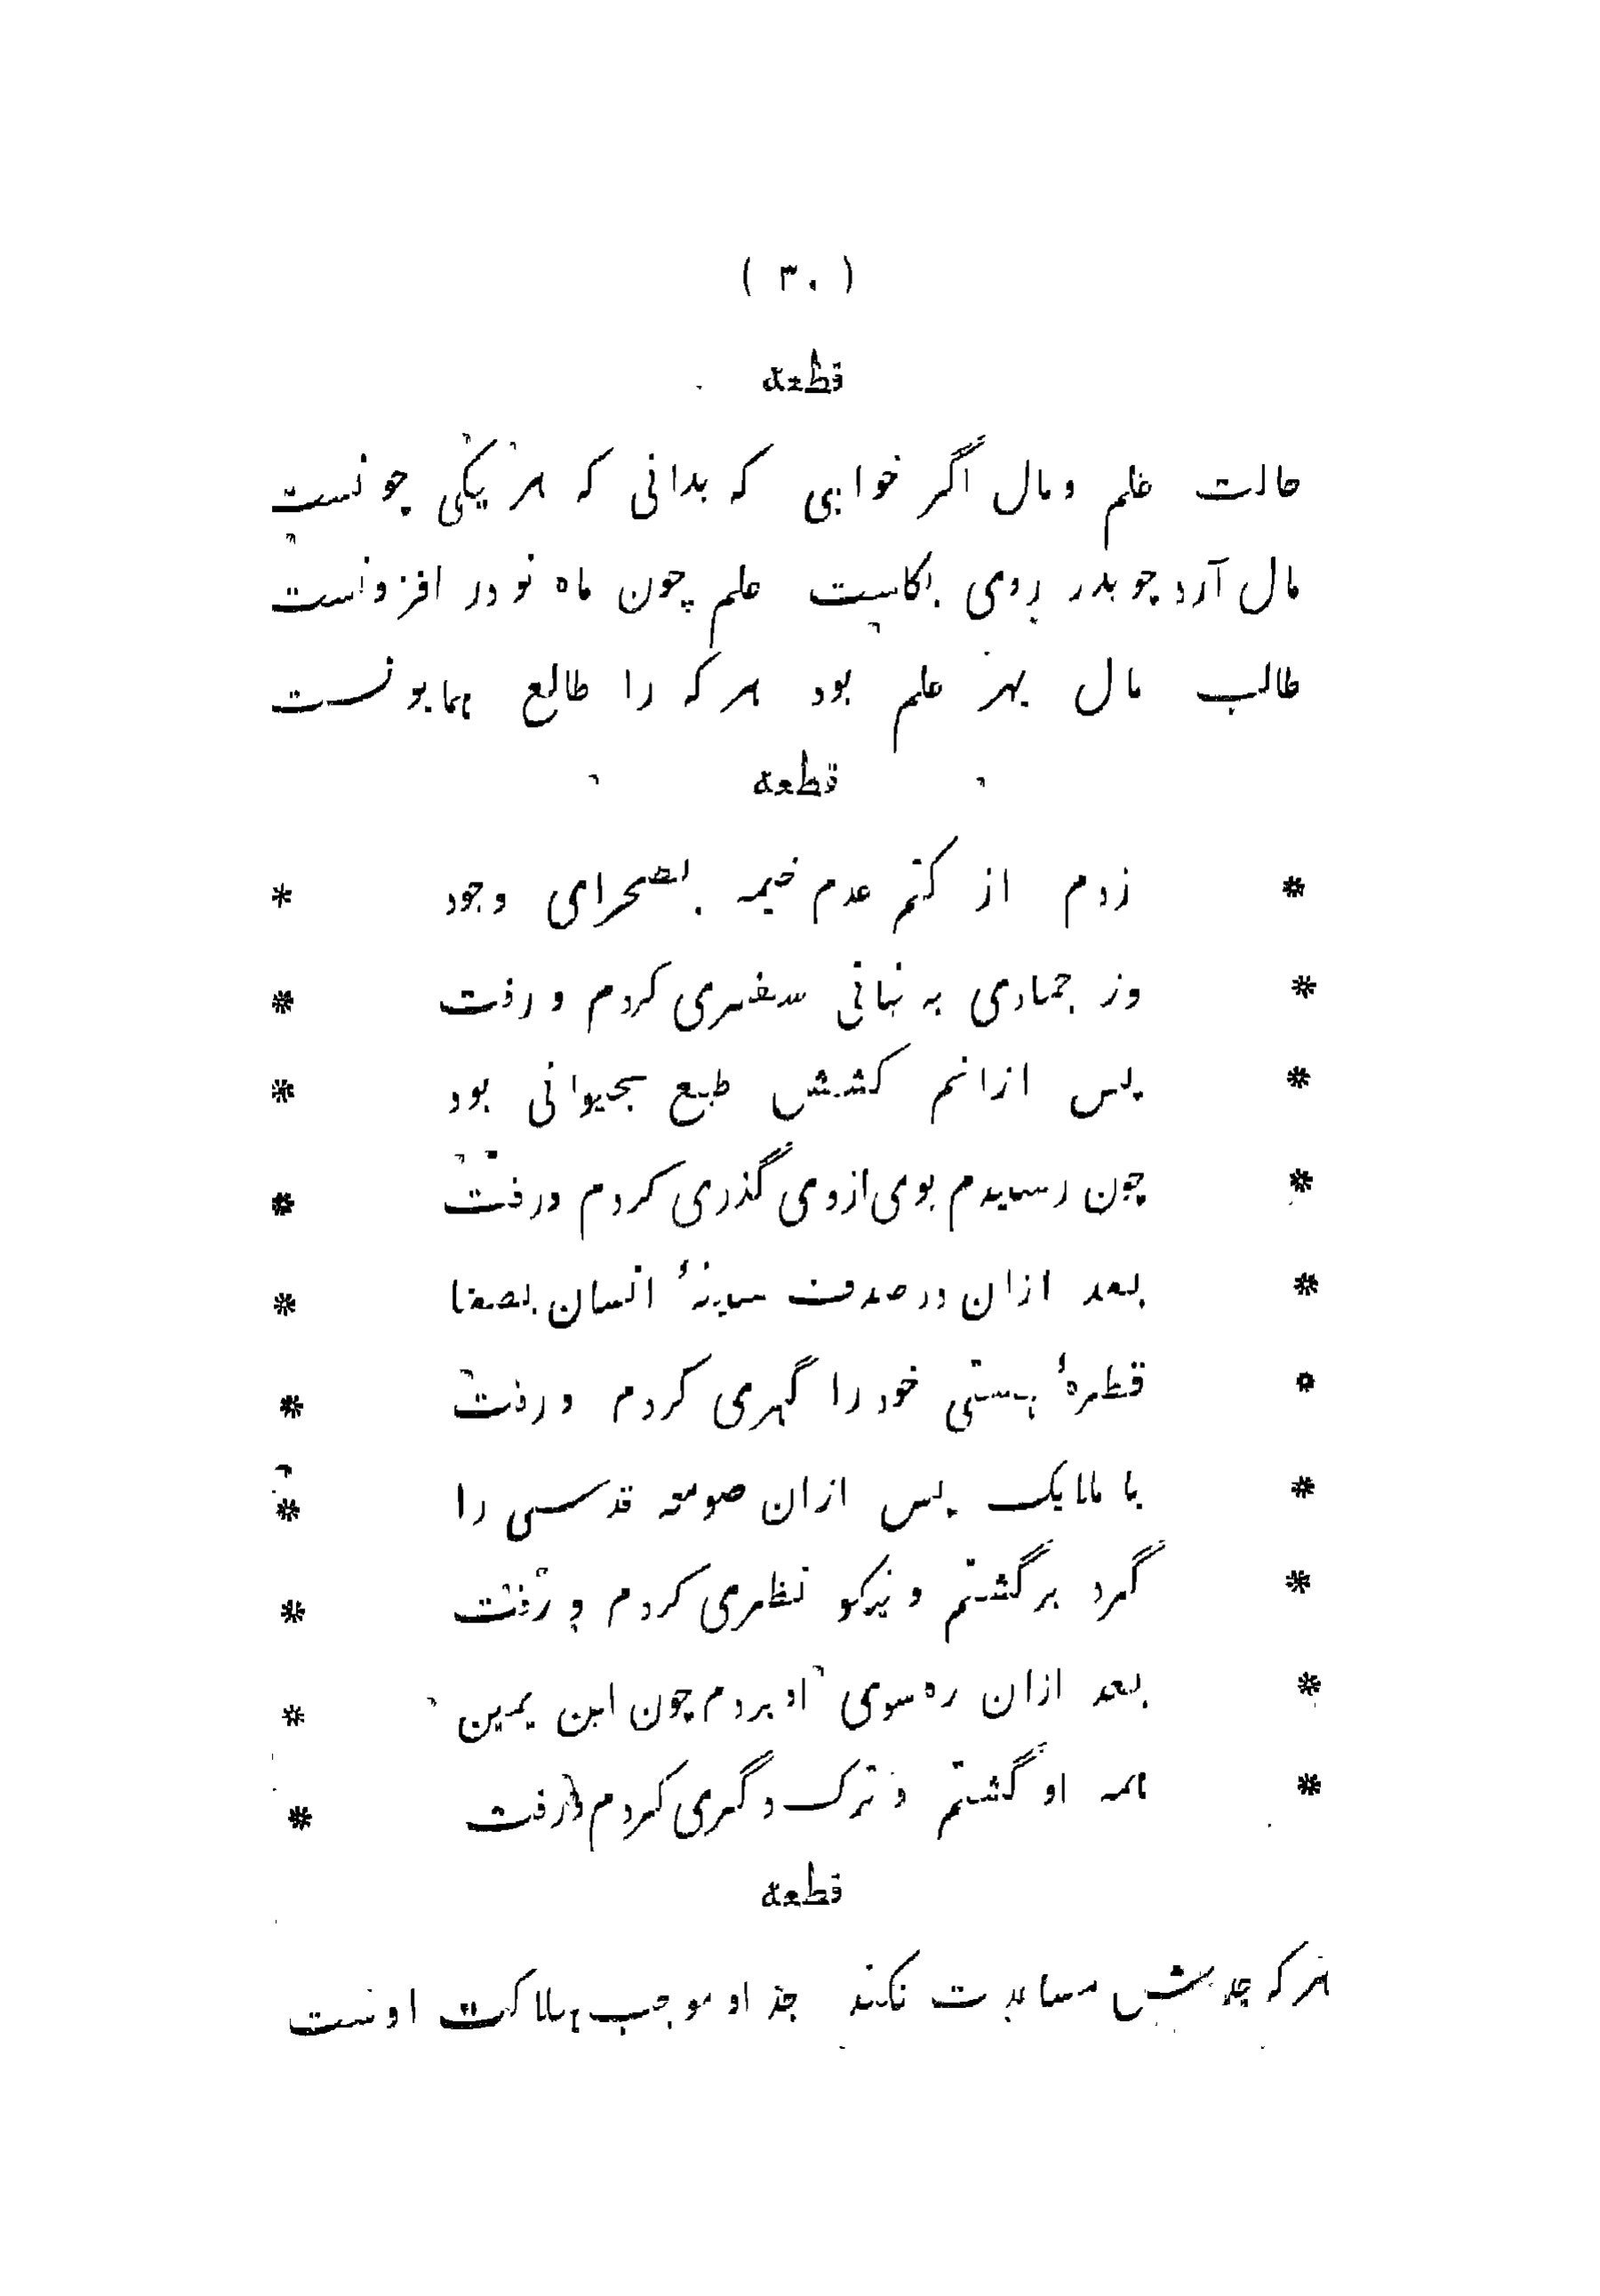 ( ۳۰ )
قطعه
حالت علم و مال اگر خواہی که بدانی که هر یکی چونست
مال آرد چو بدر روی بکاست علم چون ماه نو در افزونست
طالب مال بهر علم بود هر که را طالع همایونست
قطعه
* زدم از کتم عدم خیمه بصحرای وجود *
* وز جمادی به نباتی سفری کردم و رفت *
* پس ازانم کشش طبع بحیوانی بود *
* چون رسیدم بوی ازوی گذری کردم و رفت *
* بعد ازان در صدف سینهٔ انسان بصفا *
* قطرهٔ هستی خود را گهری کردم و رفت *
* با ملایک پس ازان صومعه قدسی را *
* گرد بر گشتم و نیکو نظری کردم و رفت *
* بعد ازان ره سوی او بردم چون ابن یمین *
* همه او گشتم و ترک دگری کردم و رفت *
قطعه
هر که جدش مساعدت نکند جد او موجب هلاکت اوست